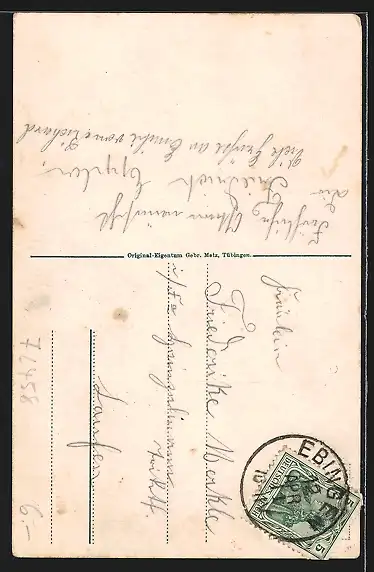 Fröhliche Ostern wünscht
Dir
Friedrich Eppler.
Viele Grüße an Emilie von Richard
Original-Eigentum Gebr. Metz, Tübingen.
Fräulein
Friederike Merkle
Laufen
EBINGEN
DEUTSCHES REICH
5 5
72458
6.-